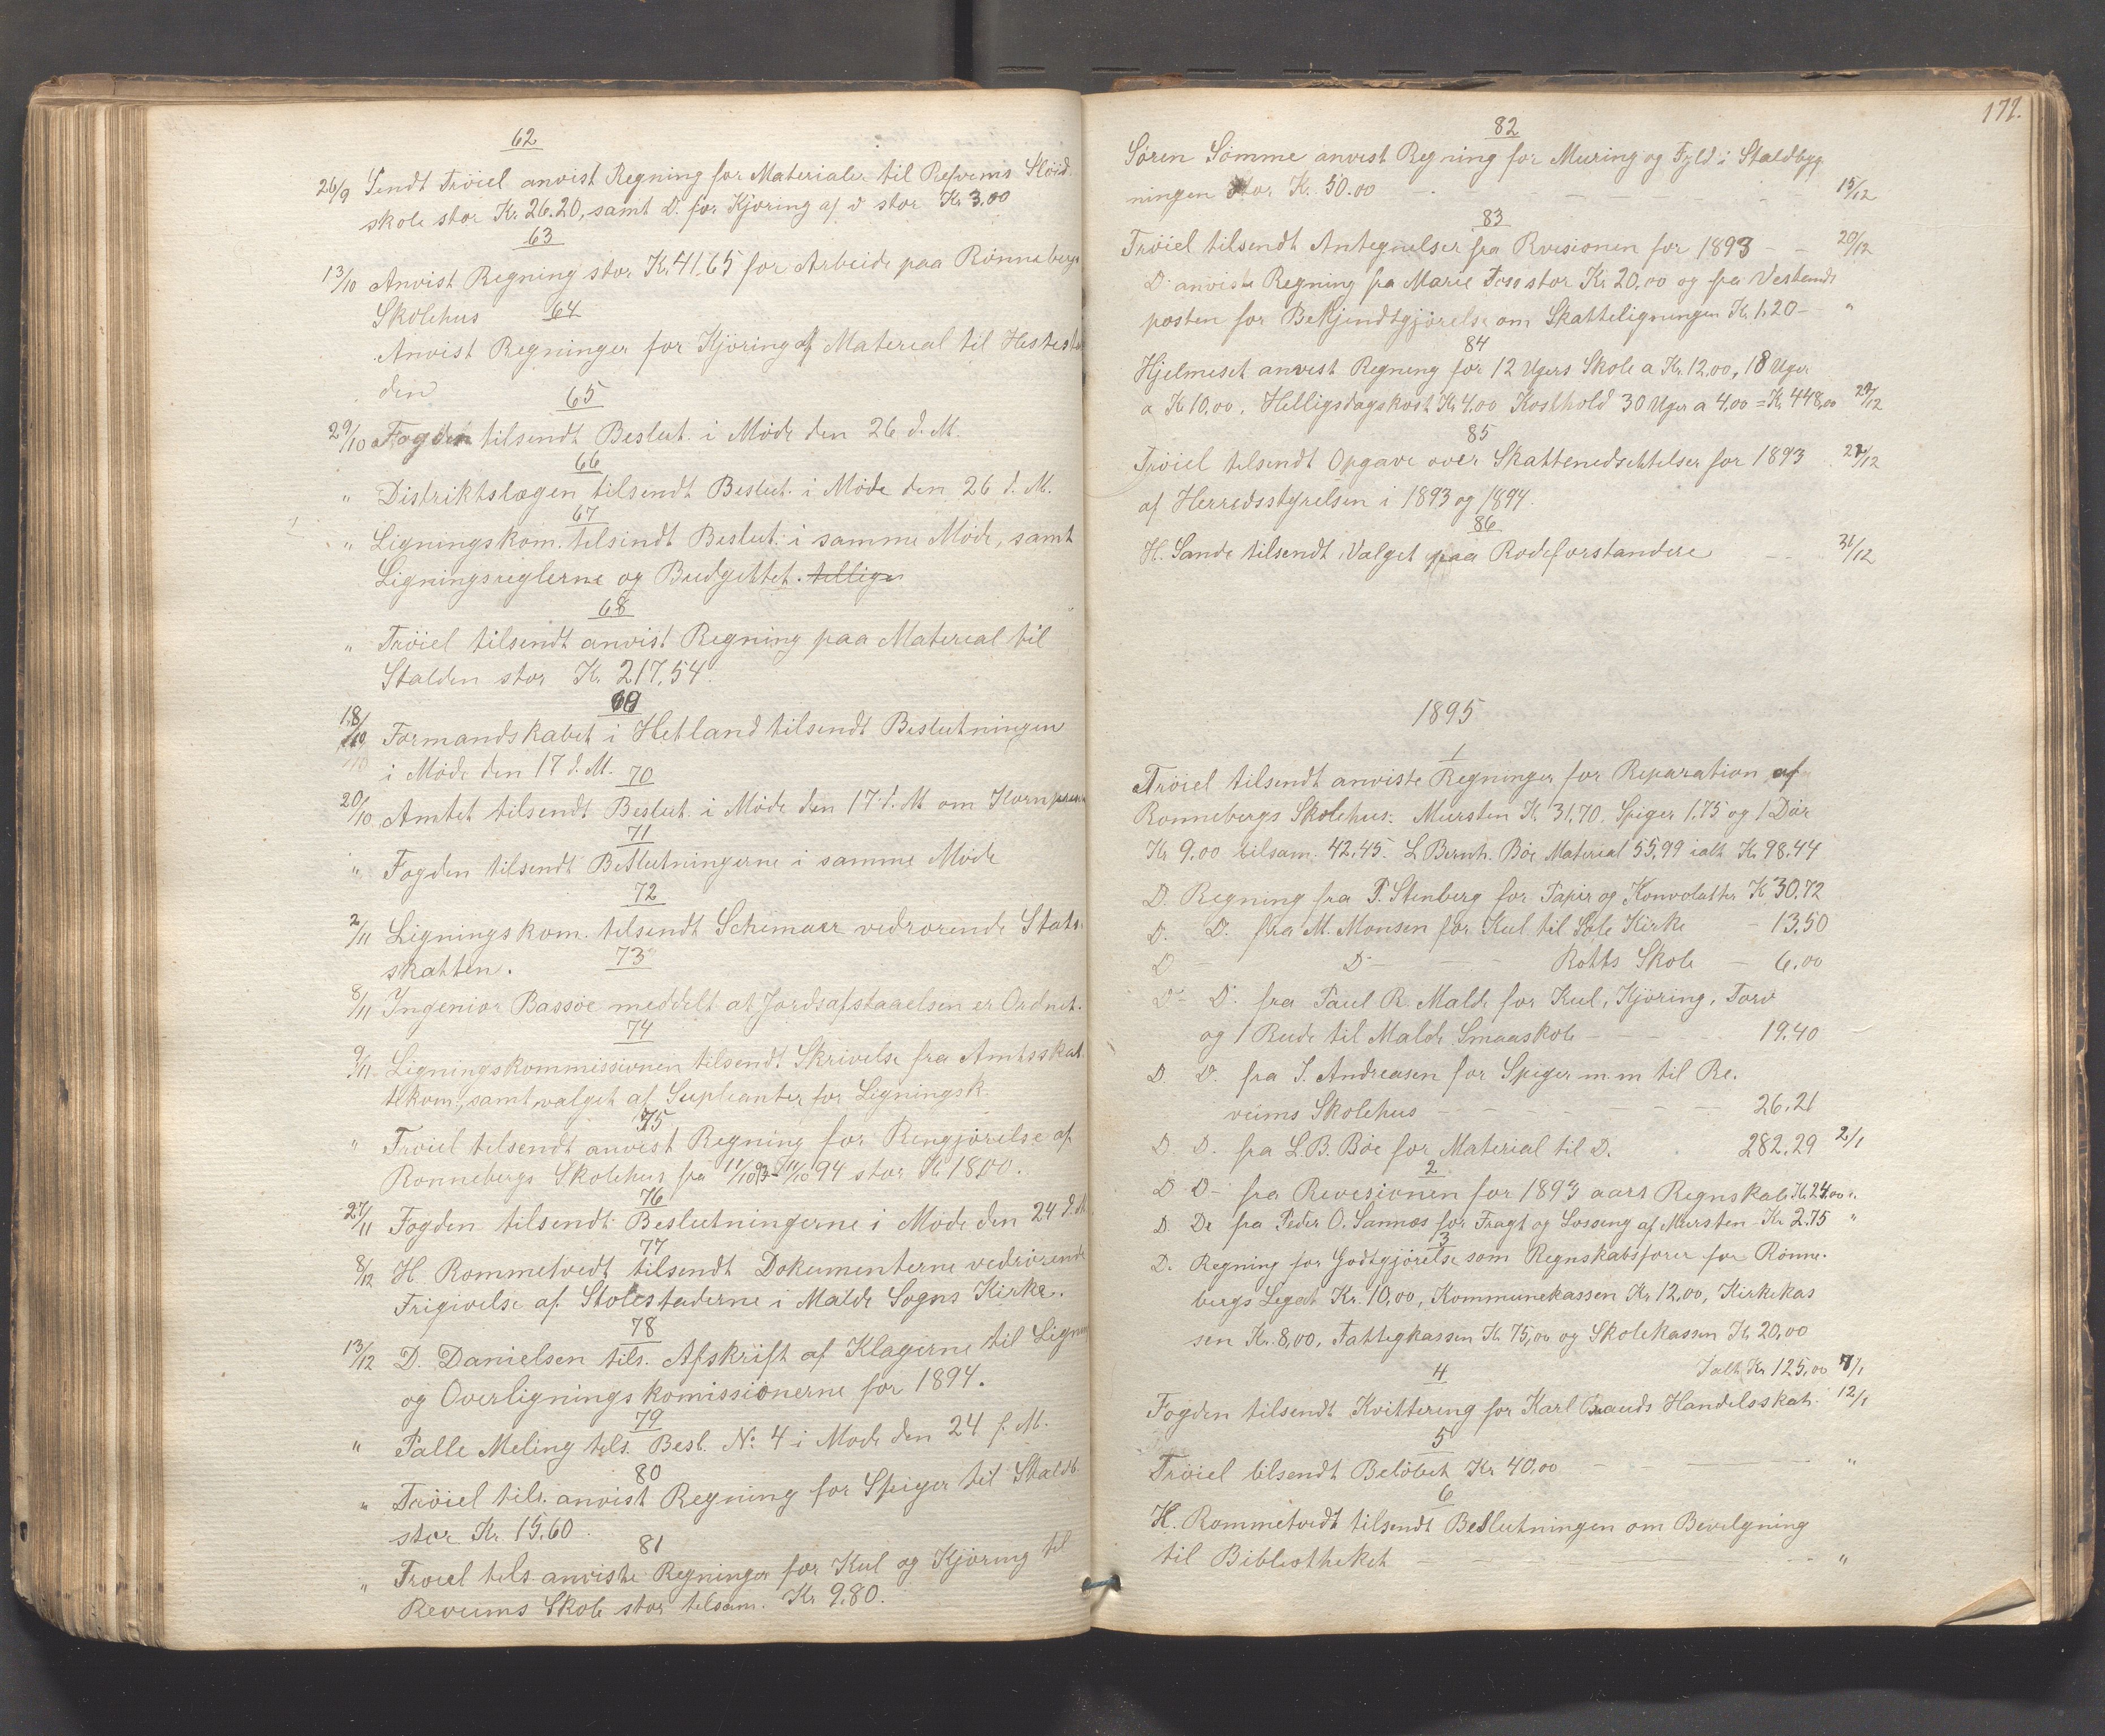 62
26/9 Sendt Tröiel anvist Regning for Materialer til Revems Slöid.
skole stor Kr. 26.20, samt D. for Kjöring af d stor Kr. 3.00
63
13/10 Anvist Regning stor Kr. 41,65 for Arbeide paa Rönnebergs
Skolehus
64
Anvist Regninger for Kjöring af Material til Hestestal
den
65
29/10 Fogden tilsendt Beslut. i Möde den 26 d. M.
66
" Distriktslægen tilsendt Beslut. i Möde den 26 d. M.
67
" Ligningskom. tilsendt Beslut. i samme Möde, samt
Ligningsreglerne og Budgettet. tillige
68
" Tröiel tilsendt anvist Regning paa Material til
Stalden stor Kr. 217,54.
69
18/10 Formandskabet i Hetland tilsendt Beslutningen
i Möde den 17 d. M.
70
20/10 Amtet tilsendt Beslut. i Möde den 17 d. M om
71
" Fogden tilsendt Beslutningerne i samme Möde
72
2/11 Ligningskom. tilsendt Schemaer vedrörende Stats-
skatten.
73
8/11 Ingeniör Bassöe meddelt at Jordsafstaaelsen er Ordnet.
74
9/11 Ligningskommissionen tilsendt Skrivelse fra Amtsskat
tekom., samt valget af Supleanter for Ligningsk.
75
" Tröiel tilsendt anvist Regning for Rengjörelse af
Ronnebergs Skolehus fra 11/10 93 - 11/10 94 stor Kr 18,00.
76
27/11 Fogden tilsendt Beslutningerne i Möde den 24 d. M
77
8/12 H. Rommetvedt tilsendt Dokumenterne vedrörende
Frigivelse af Stolestaderne i Malde Sogns Kirke.
78
13/12 D. Danielsen tils. Afskrift af Klagerne til Lign
og Overligningskomissionerne for 1894.
79
" Palle Meling tils. Besl. No. 4 i Möde den 24 f. M.
80
" Tröiel tils. anvist Regning for Spiger til Staldb.
stor Kr. 15.60.
81
" Tröiel tils. anviste Regninger for Kul og Kjöring til
Revums Skole stor tilsam. Kr 9.80.
171.
82
Sören Sömme anvist Regning for Muring og Fyld i Staldbyg
ningen stor Kr. 50.00 15/12
83
Tröiel tilsendt Antegnelser fra Rvisionen for 1893 20/12
D. anviste Regning fra Marie stor Kr 20,00 og fra Vestlands
posten for Bekjendtgjörelse om Skatteligningen Kr. 1,20 "
84
Hjelmeset anvist Regning for 12 Ugers Skole a Kr. 12,00, 18 Uger
a Kr 10,00, Helligsdagskost Kr 4,00 Kosthold 30 Uger a 4,00 = Kr 448,00 27/12
85
Tröiel tilsendt Opgave over Skattenedsettelser for 1893 27/12
af Herredsstyrelsen i 1893 og 1894.
86
H. Sande tilsendt Valget paa Rodeforstandere 31/12
1895
1
Tröiel tilsendt anviste Regninger for Reparation af
Ronnebergs Skolehus. Mursten Kr. 31,70. Spiger 1,75 og 1 Dör
Kr 9.00 tilsam. 42.45. L Bernh. Böe Material 55,99 ialt Kr. 98.44
D. Regning fra P. Stenberg for Papir og Konvolutter Kr 30.72
D. D. fra M. Monsen for Kul til Sole Kirke - 13,50
D - D - Rotts Skole - 6,00
D - D. fra Paul R. Malde for Kul, Kjöring, Torv
og 1 Rude til Malde Smaaskole - 19.40
D. D. fra J. Andreasen for Spiger m. m til Re.
veims Skolehus - 26.21
D. D. fra L. B. Böe for Material til D. 282,29 2/1
2
D D - fra Revisionen for 1893 aars Regnskab Kr. 24.00 ".
D. De fra Peder O. Sannæs for Fragt og Lossing af Mursten Kr 2.75 "
3
D. Regning for Godtgjörelse som Regnskabsförer for Rönne.
bergs Legat Kr. 10,00, Kommunekassen Kr 12,00, Kirkekas
sen Kr. 8,00, Fattigkassen Kr 75,00 og Skolekassen Kr. 20,00
Ialt Kr 125,00 7/1
4
Fogden tilsendt Kvittering for Karl Handelsskat. 12/1
5
Tröiel tilsendt Belöbet Kr 40,00 "
6
H. Rommetvedt tilsendt Beslutningen om Bevilgning
til Bibliotheket "